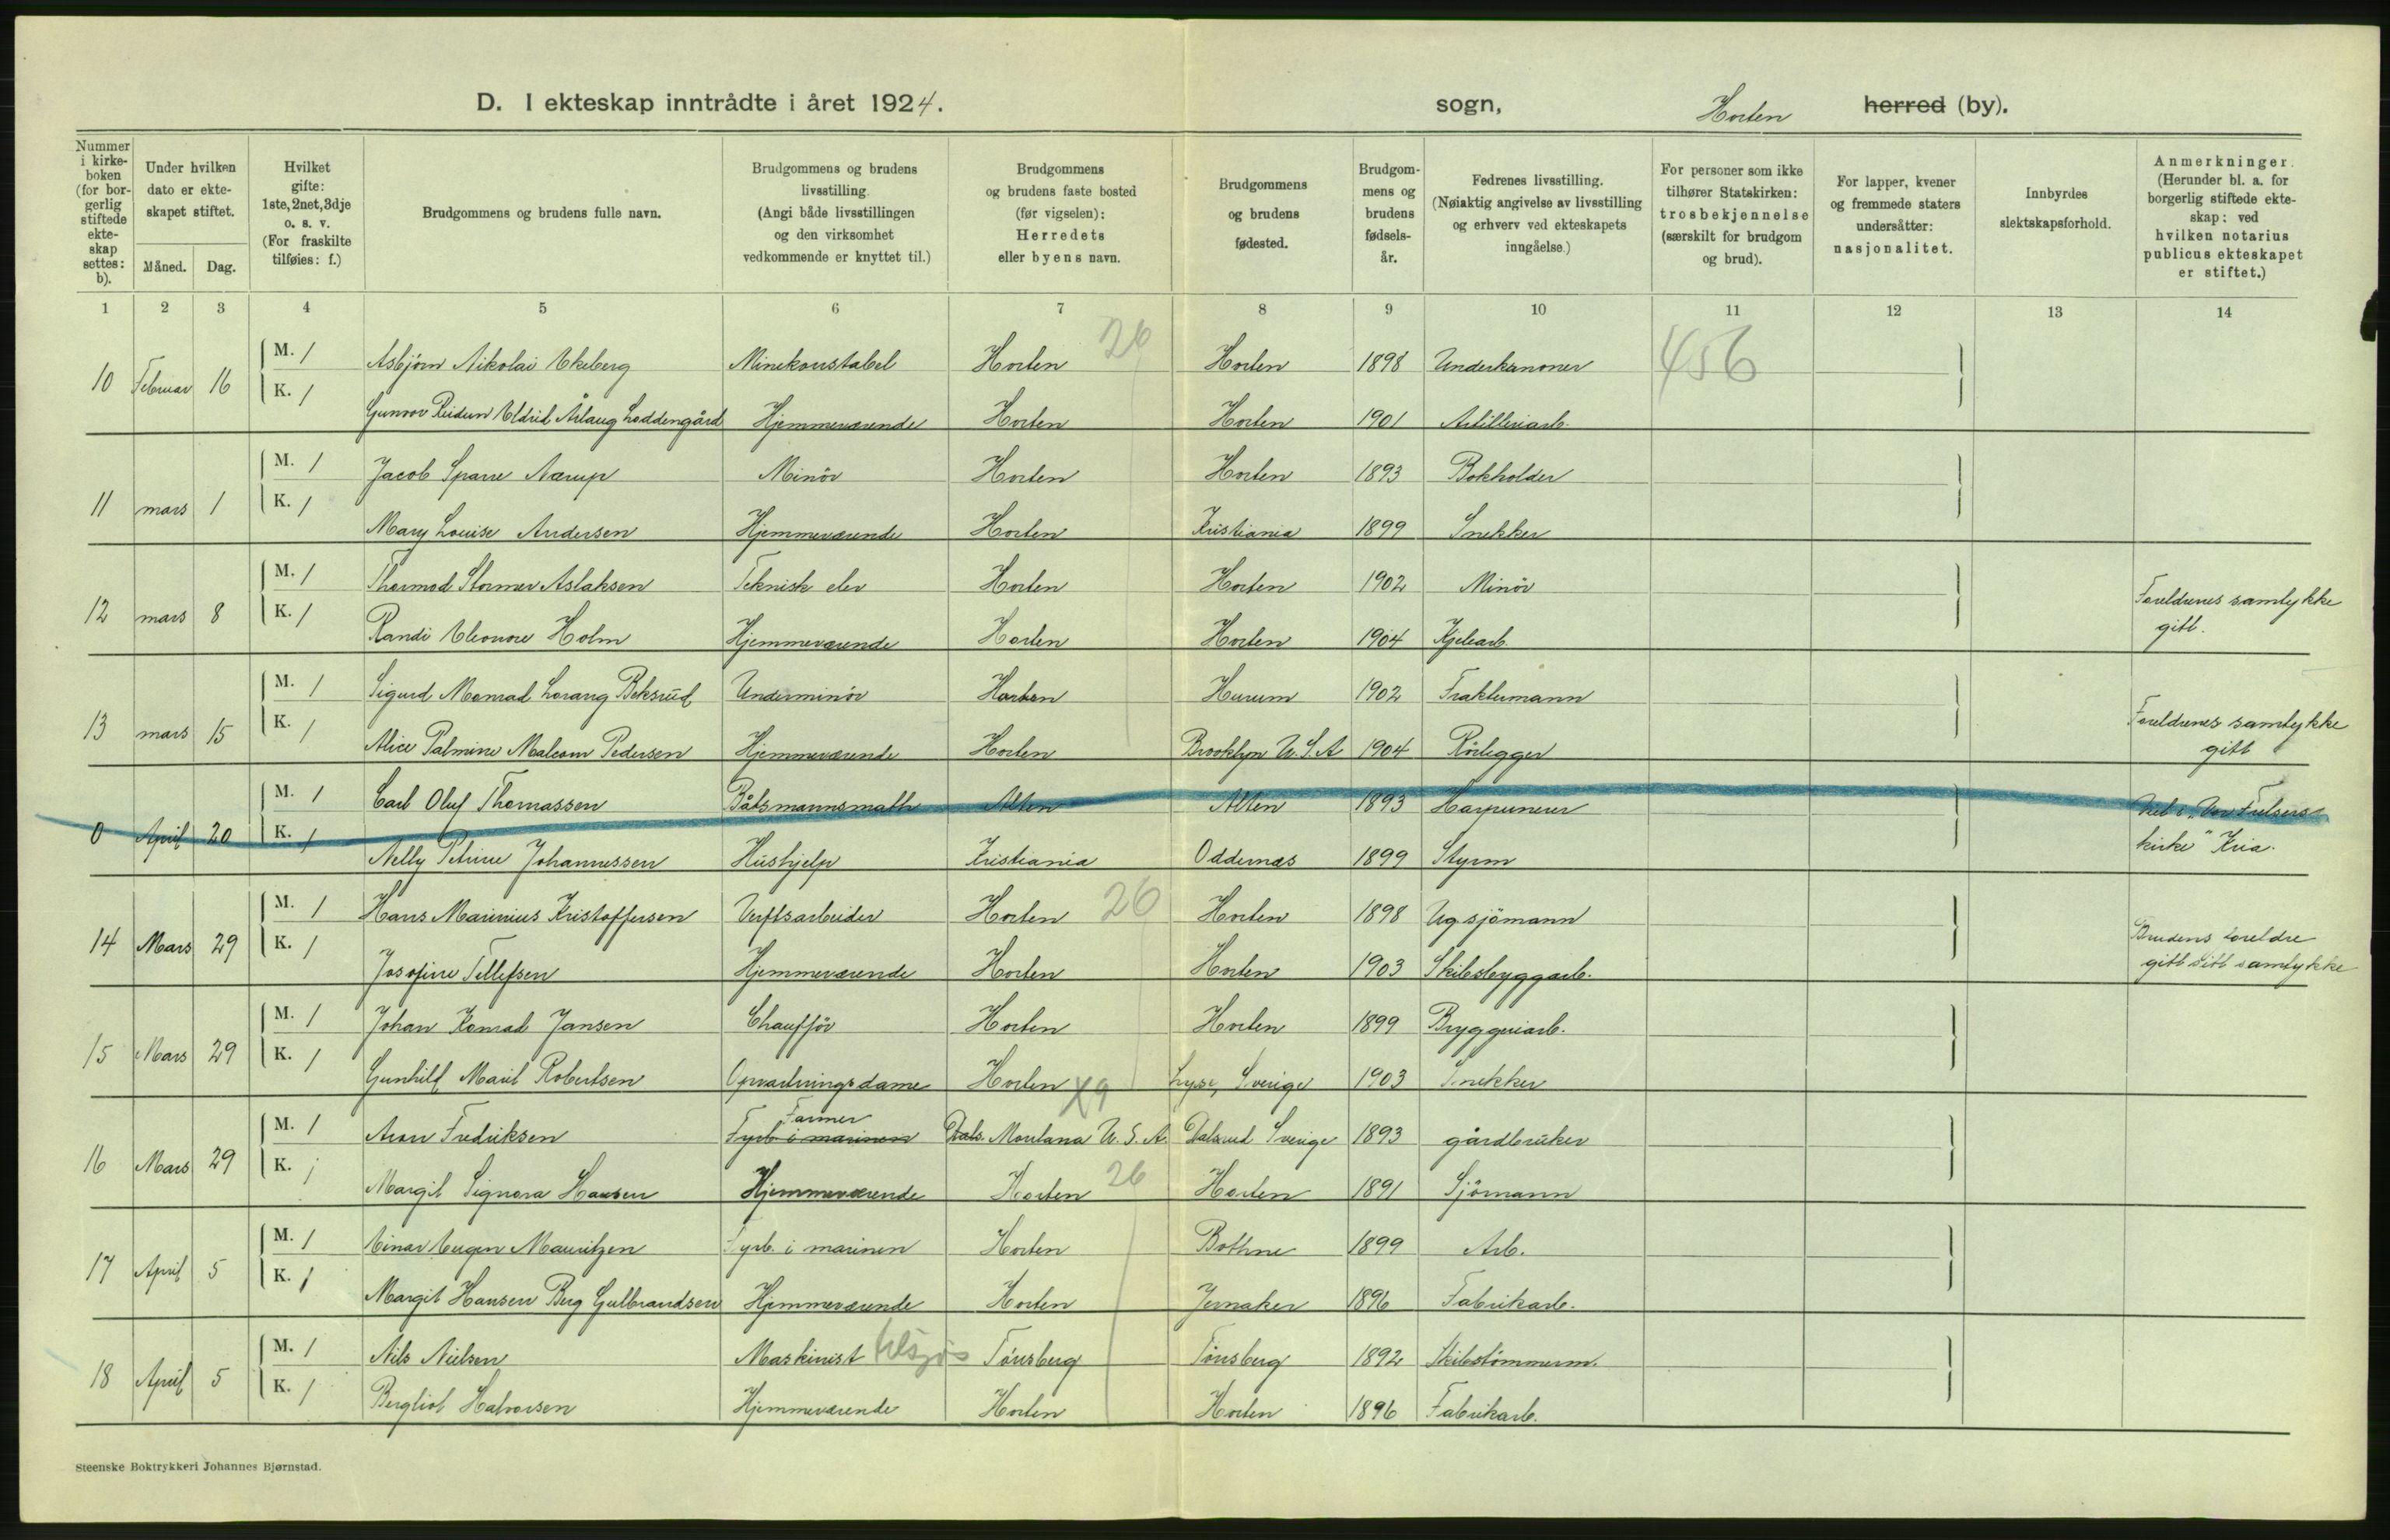 D. I ekteskap inntrådte i året 1924. sogn, Horten herred (by).
Nummer i kirkeboken (for borgerlig stiftede ekteskap settes: b). Under hvilken dato er ekteskapet stiftet. Måned. Dag. Hvilket gifte: 1ste, 2net, 3dje o. s. v. (For fraskilte tilføies: f.) Brudgommens og brudens fulle navn. Brudgommens og brudens livsstilling (Angi både livsstillingen og den virksomhet vedkommende er knyttet til.) Brudgommens og brudens faste bosted (før vigselen): Herredets eller byens navn. Brudgommens og brudens fødested. Brudgommens og brudens fødselsår. Fedrenes livsstilling. (Nøiaktig angivelse av livsstilling og erhverv ved ekteskapets inngåelse.) For personer som ikke tilhører Statskirken: trosbekjennelse (særskilt for brudgom og brud). For lapper, kvener og fremmede staters undersåtter: nasjonalitet. Innbyrdes slektskapsforhold. Anmerkninger. (Herunder bl. a. for borgerlig stiftede ekteskap: ved hvilken notarius publicus ekteskapet er stiftet.)
1 2 3 4 5 6 7 8 9 10 11 12 13 14
10 Februar 16 M. 1 Asbjörn Nikolai Ekeberg Minekonstabel Horten 26 Horten 1898 Underkanoner 456
K. 1 Gunvor Reidun Eldrid Årlaug Loddengård Hjemmeværende Horten Horten 1901 Artilleriarb.
11 mars 1 M. 1 Jacob Sparre Nærup Minör Horten Horten 1893 Bokholder
K. 1 Mary Louise Andersen Hjemmeværende Horten Kristiania 1899 Snekker
12 mars 8 M. 1 Thormod Stormer Aslaksen Teknisk elev Horten Horten 1902 Minör Foreldrenes samtykke
K. 1 Randi Eleonore Holm Hjemmeværende Horten Horten 1904 Kjelearb. gitt.
13 mars 15 M. 1 Sigurd Monrad Lorang Beksrud Underminör Horten Hurum 1902 Fraktemann Foreldrenes samtykke
K. 1 Alice Palmine Malcom Pedersen Hjemmeværende Horten Brooklyn U.S.A 1904 Rörlegger gitt
0 April 20 M. 1 Carl Oluf Thomassen Båtsmannsmath Alten Alten 1893 Harpunerer Viet i "Vor Frelsers
K. 1 Nelly Petrine Johannessen Hushjelp Kristiania Oddernæs 1899 Styrm kirke" Kria.
14 Mars 29 M. 1 Hans Marinius Kristoffersen Verftsarbeider Horten 26 Horten 1898 Ug sjömann Brudens foreldre
K. 1 Josofine Tellefsen Hjemmeværende Horten Horten 1903 Skibsbyggarb. gitt sitt samtykke
15 Mars 29 M. 1 Johan Konrad Jansen Chaufför Horten Horten 1899 Bryggeriarb.
K. 1 Gunhild Marit Robertsen Opvartningsdame Horten X9 Lyse, Sverige 1903 Snekker
16 Mars 29 M. 1 Aron Fredriksen Fyrb. i marinen Farmer Dals Montana U.S.A. Dalsrud Sverige 1893 gårdbruker
K. 1 Margit Signora Hansen Hjemmeværende Horten 26 Horten 1891 Sjömann
17 April 5 M. 1 Einar Eugen Mauritzen Fyrb. i marinen Horten Bothne 1899 Arb.
K. 1 Margit Hansen Berg Gulbrandsen Hjemmeværende Horten Jernaker 1896 Fabrikarb.
18 April 5 M. 1 Nils Nielsen Maskinist tilsjøs Tönsberg Tönsberg 1892 Skibstömmerm.
K. 1 Bergliot Halvorsen Hjemmeværende Horten Horten 1896 Fabrikarb.
Steenske Boktrykkeri Johannes Bjørnstad.